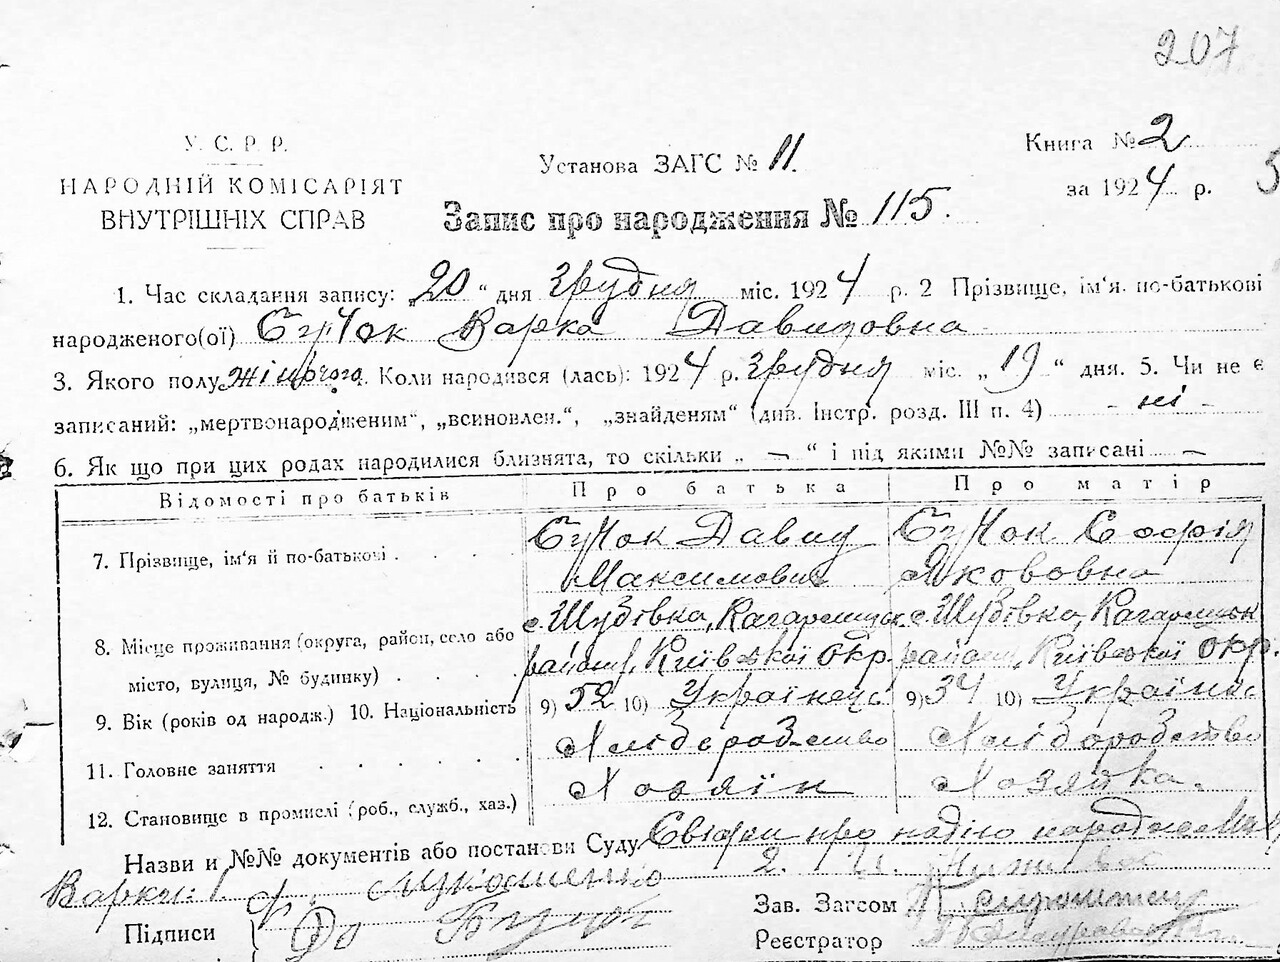 207
У. С. Р. Р.
НАРОДНІЙ КОМІСАРІЯТ
ВНУТРІШНІХ СПРАВ
Установа ЗАГС № 11.
Книга № 2
за 1924 р.
Запис про народження № 115.
1. Час складання запису: „20“ дня Грудня міс. 1924 р. 2 Прізвище, ім‘я. по-батькові
народженого(ої) Варка Давидовна
3. Якого полу жіночого. Коли народився (лась): 1924 р. Грудня міс. „19“ дня. 5. Чи не є
записаний: „мертвонародженим“, „всиновлен.“, „знайденям“ (див. Інстр. розд. III п. 4) - ні -
6. Як що при цих родах народилися близнята, то скільки „ — “ і під якими №№ записані —
Відомості про батьків Про батька Про матір
7. Прізвище, ім‘я й по-батькові Давид Софія
Максимович Якововна
8. Місце проживання (округа, район, село або с. Шубівка, с. Шубівка,
місто, вулиця, № будинку) району, Київської Окр. району, Київської Окр.
9. Вік (років од народж.) 10. Національність 9) 52 10) Українець 9) 34 10)
11. Головне заняття Хліборобство Хліборобство
12. Становище в промислі (роб., служб., хаз.) Хозяїн Хозяйка.
Назви и №№ документів або постанови Суду про народження
Варки: 1. Лукашенко 2.
Підписи
Зав. Загсом
Реєстратор